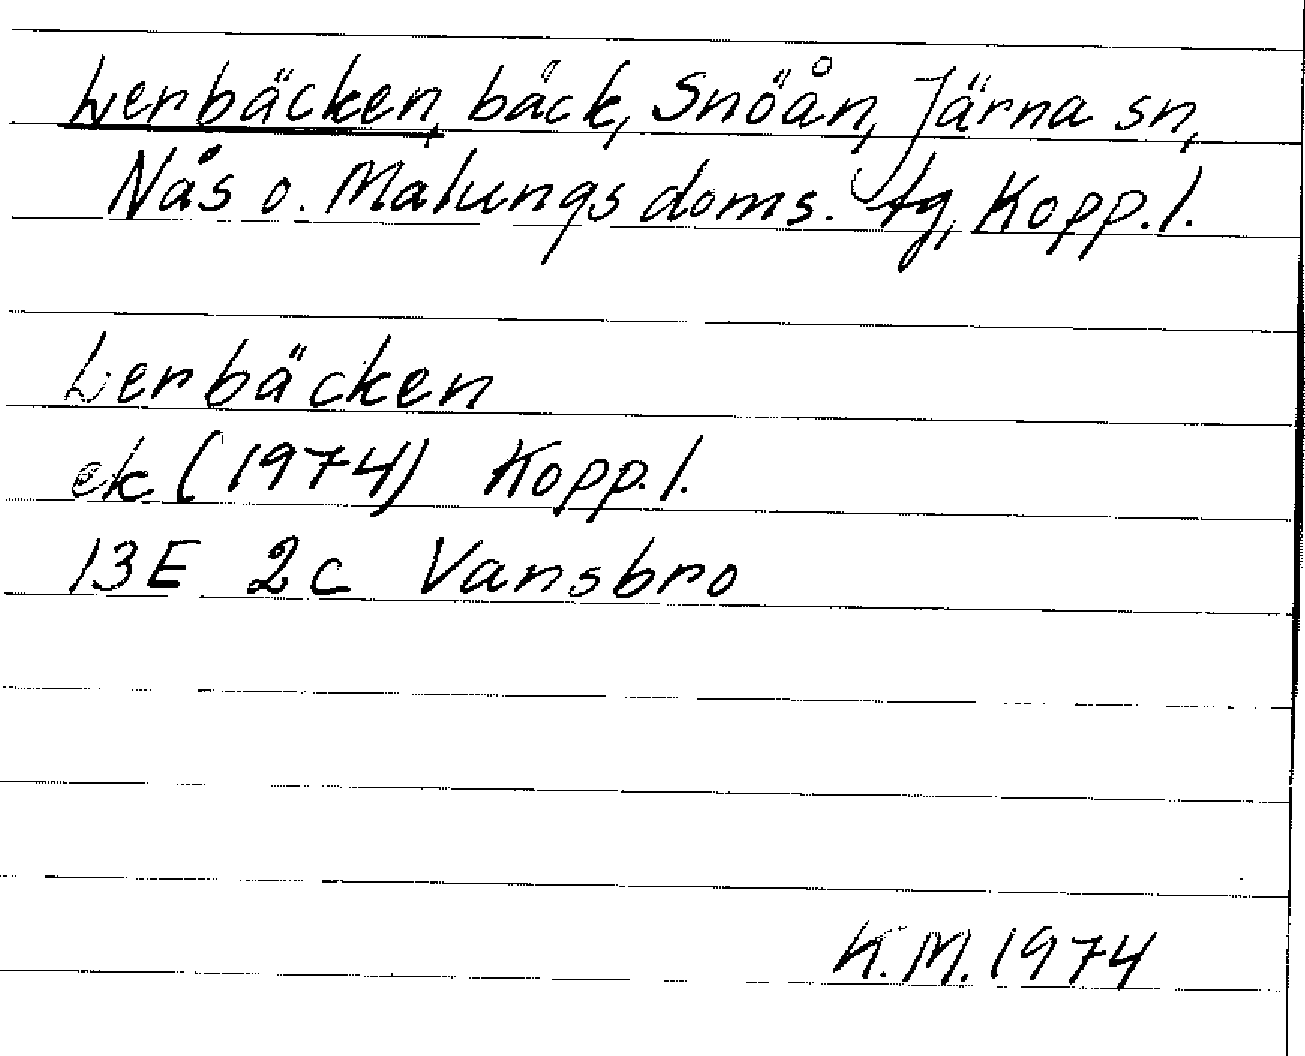 Lerbäcken, bäck, Snöån, Järna sn,
Nås o. Malungs doms. tg, Kopp.l.
Lerbäcken
ek (1974) Kopp.l.
13E 2c Vansbro
K.M. 1974